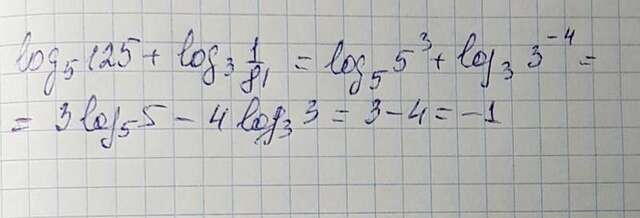 log₅125 + log₃ 1/81 = log₅5³ + log₃3⁻⁴ =
= 3log₅5 − 4log₃3 = 3 − 4 = −1